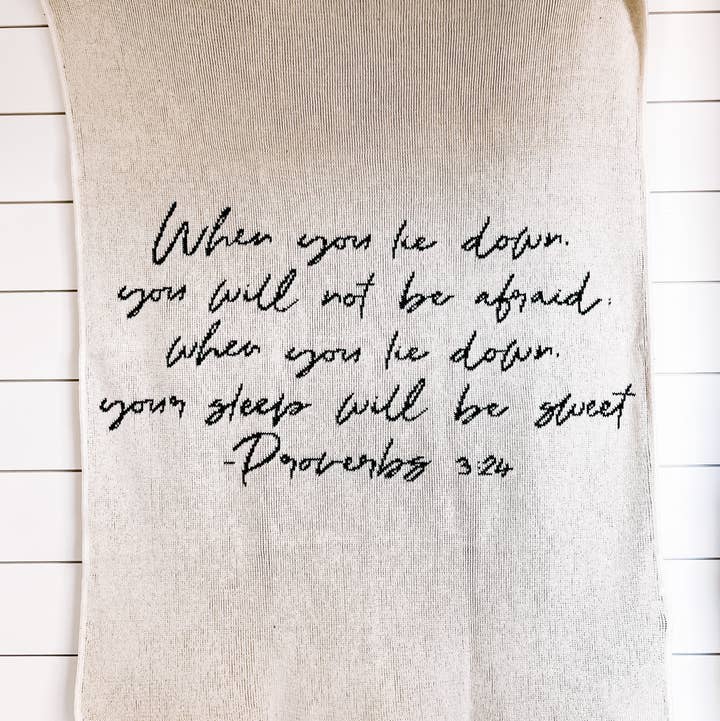 When you lie down,
you will not be afraid;
when you lie down,
your sleep will be sweet
-Proverbs 3:24